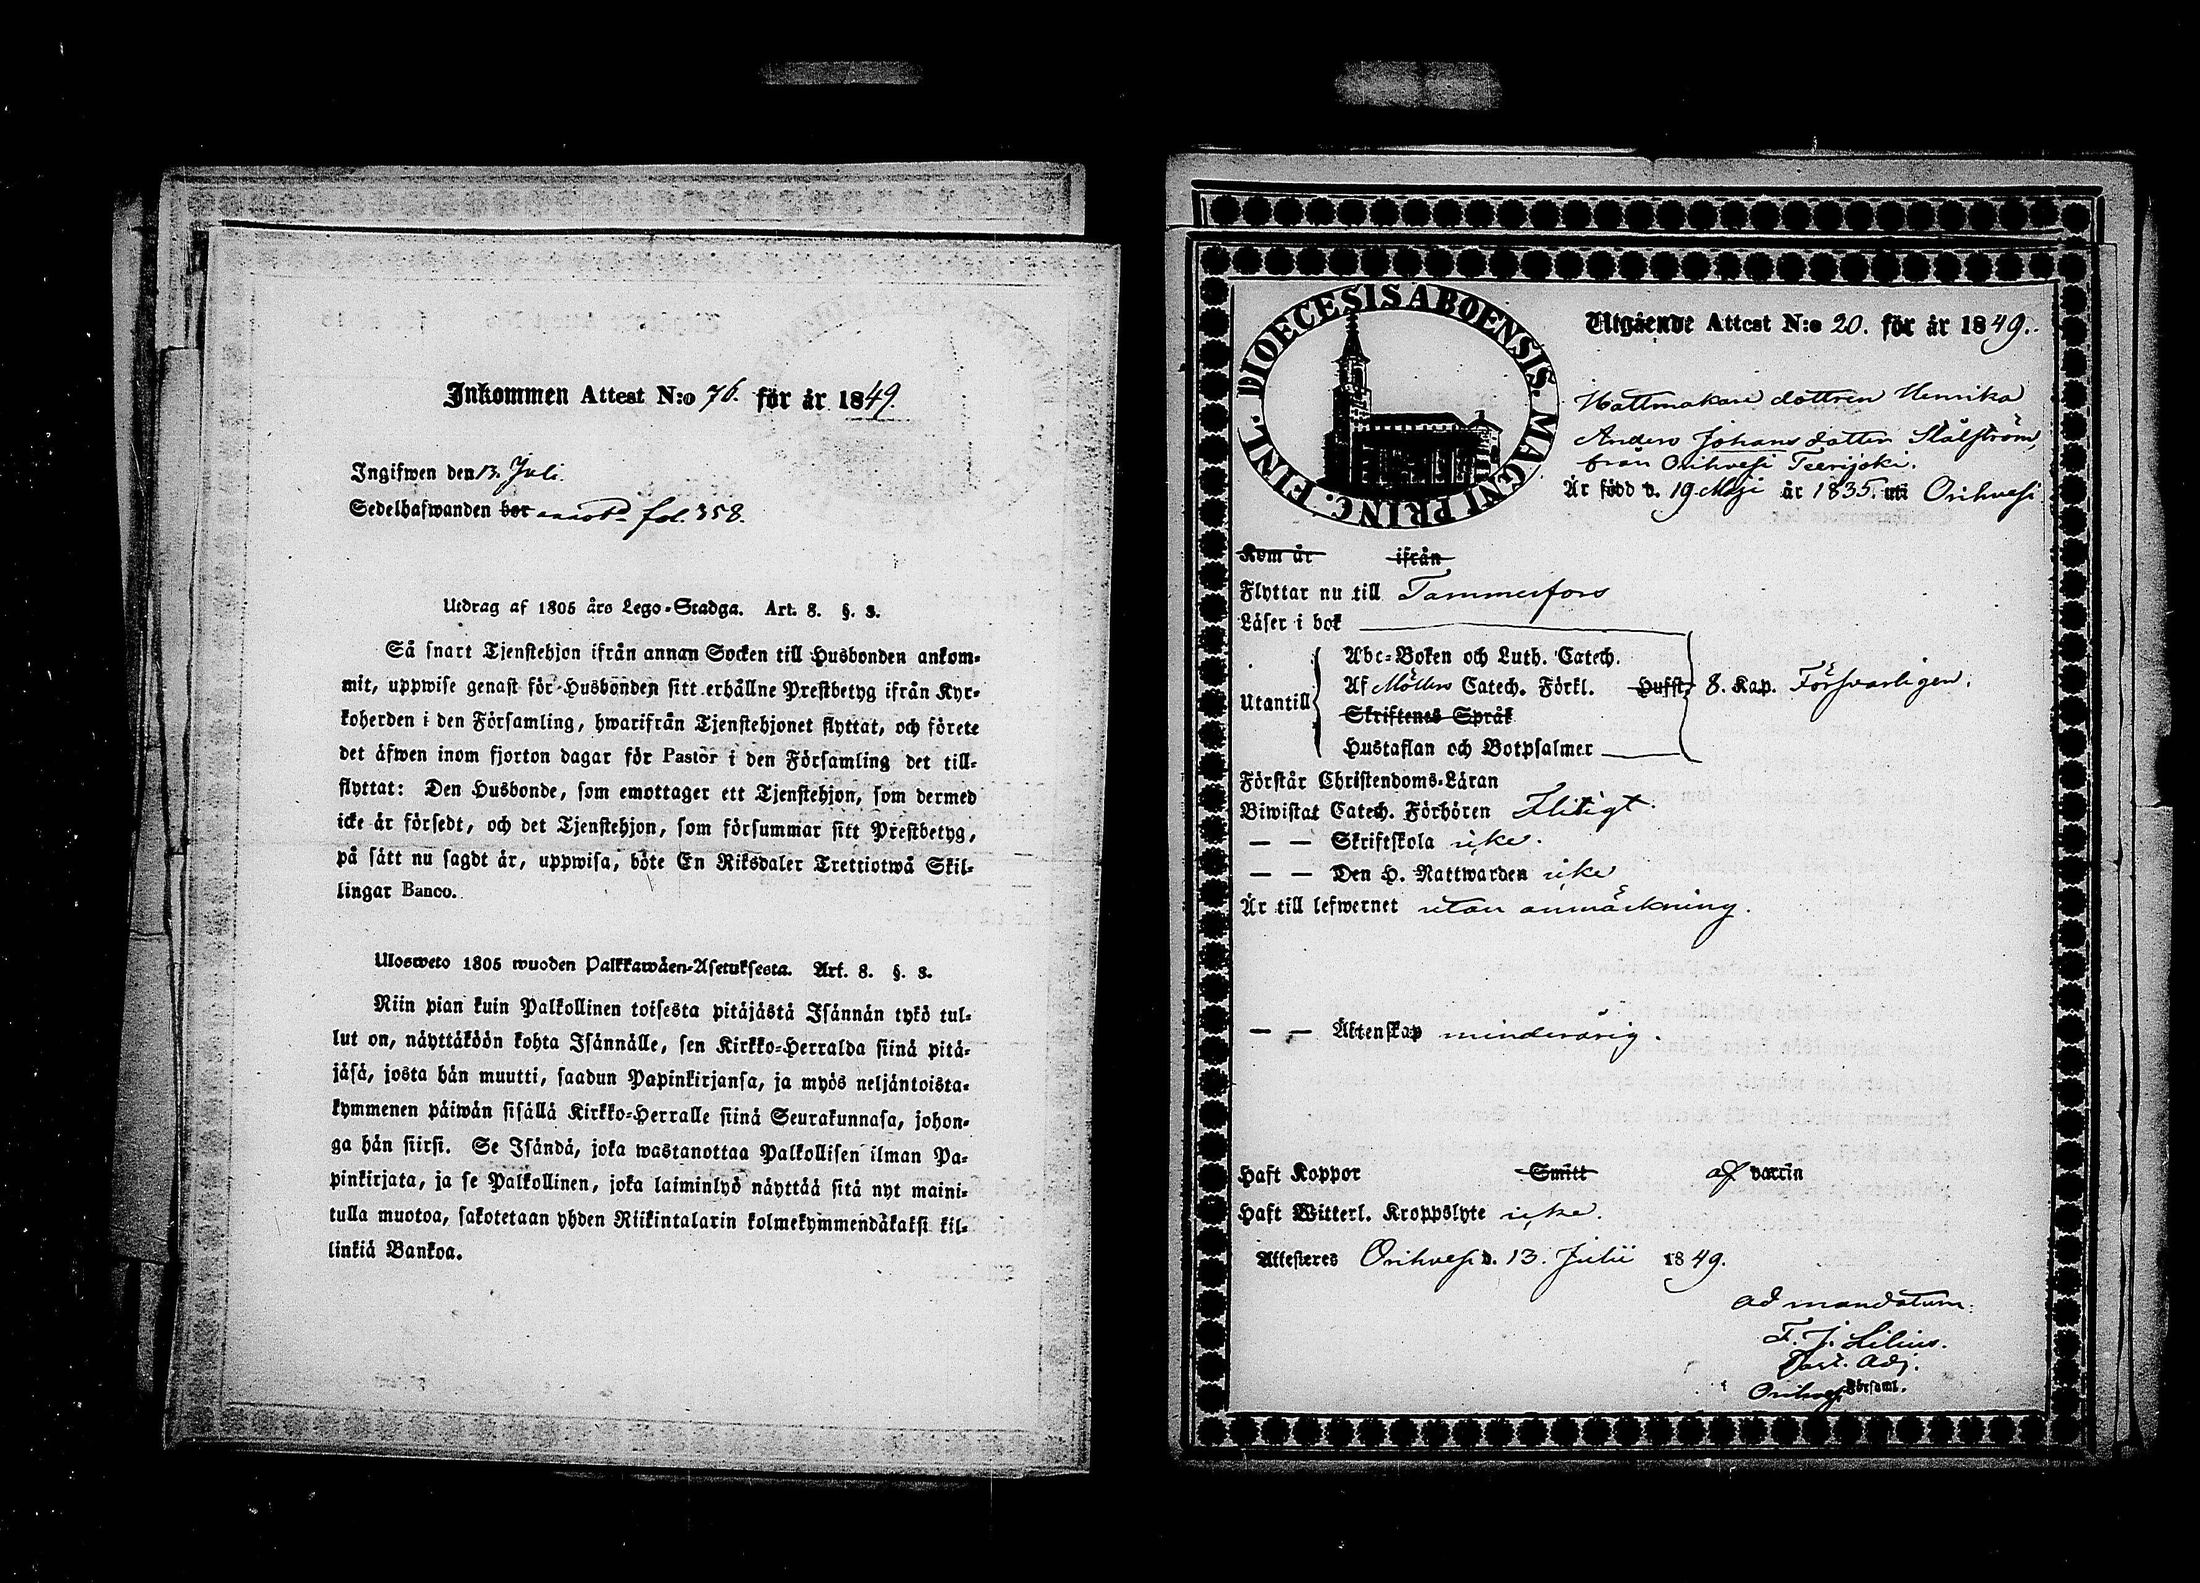 Inkommen Attest N:o 76. för år 1849.
Ingifwen den 13. Juli.
Sedelhafwanden bor fol. 358.
Utdrag af 1805 års Lego-Stadga. Art. 8. §. 3.
Så snart Tjenstehjon ifrån annan Socken till Husbonden ankom-
mit, uppwise genast för Husbonden sitt erhållne Prestbetyg ifrån Kyr-
koherden i den Församling, hwarifrån Tjenstehjonet flyttat, och förete
det äfwen inom fjorton dagar för Pastor i den Församling det till-
flyttat: Den Husbonde, som emottager ett Tjenstehjon, som dermed
icke är försedt, och det Tjenstehjon, som försummar sitt Prestbetyg,
på sätt nu sagdt är, uppwisa, böte En Riksdaler Trettiotwå Skil-
lingar Banco.
Ulosweto 1805 wuoden Palkkawäen-Asetuksesta. Art. 8. §. 3.
Niin pian kuin Palkollinen toisesta pitäjästä Isännän tykö tul-
lut on, näyttäköön kohta Isännälle, sen Kirkko-Herralda siinä pitä-
jäsä, josta hän muutti, saadun Papinkirjansa, ja myös neljäntoista-
kymmenen päiwän sisällä Kirkko-Herralle siinä Seurakunnasa, johon-
ga hän siirsi. Se Isändä, joka wastanottaa Palkollisen ilman Pa-
pinkirjata, ja se Palkollinen, joka laiminlyö näyttää sitä nyt maini-
tulla muotoa, sakotetaan yhden Riikintalarin kolmekymmendäkaksi kil-
linkiä Bankoa.
DIOECESIS ABOENSIS. MAGNI PRINC. FINL.
Utgående Attest N:o 20. för år 1849.
Hattmakare dottren Henrika
Anders Johans dotter Stålström,
från Orihvesi Teerijoki.
Är född d. 19 Maji år 1835. uti Orihvesi
Kom år ifrån
Flyttar nu till Tammerfors
Läser i bok
Utantill
Abc-Boken och Luth. Catech.
Af Möllers Catech. Förkl. Hufst. 8. Kap. Försvarligen.
Skriftenes Språk
Hustaflan och Botpsalmer
Förstår Christendoms-Läran
Biwistat Catech. Förhören Flitigt
— — Skriftskola icke.
— — Den H. Nattwarden icke
Är till lefwernet utan anmärkning.
— — Äktenskap minderårig.
Haft Koppor Smitt af vaccin
Haft Witterl. Kroppslyte icke.
Attesteres Orihvesi d. 13. Julii 1849.
Ad mandatum:
F. J. Lilius.
Past. Adj.
Orihvesi Församl.